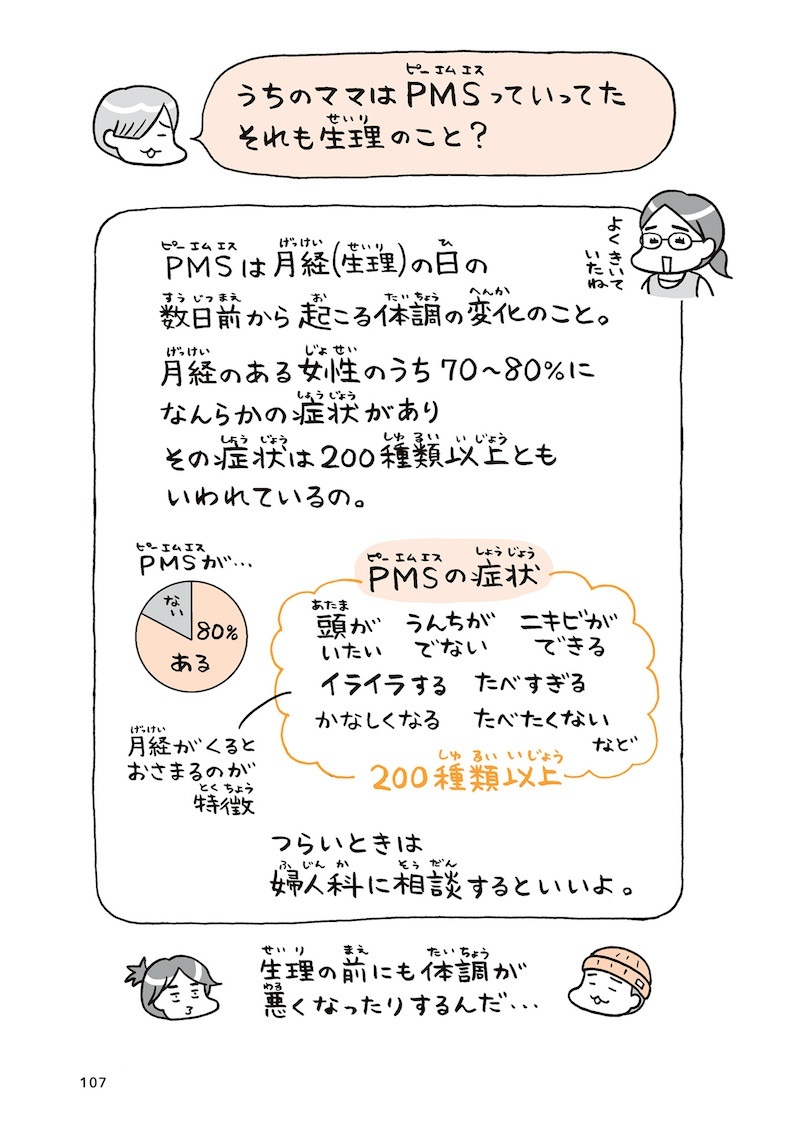 うちのママはPMSっていってた
それも生理のこと?
よくきいて
いたね
PMSは月経(生理)の日の
数日前から起こる体調の変化のこと。
月経のある女性のうち70~80%に
なんらかの症状があり
その症状は200種類以上とも
いわれているの。
PMSが…
ない
80%
ある
月経がくると
おさまるのが
特徴
PMSの症状
頭が
いたい
うんちが
でない
ニキビが
できる
イライラする
たべすぎる
かなしくなる
たべたくない
など
200種類以上
つらいときは
婦人科に相談するといいよ。
生理の前にも体調が
悪くなったりするんだ…
107